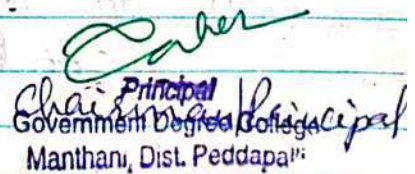 Principal
Chairman/Principal
Government Degree College
Manthani, Dist. Peddapa